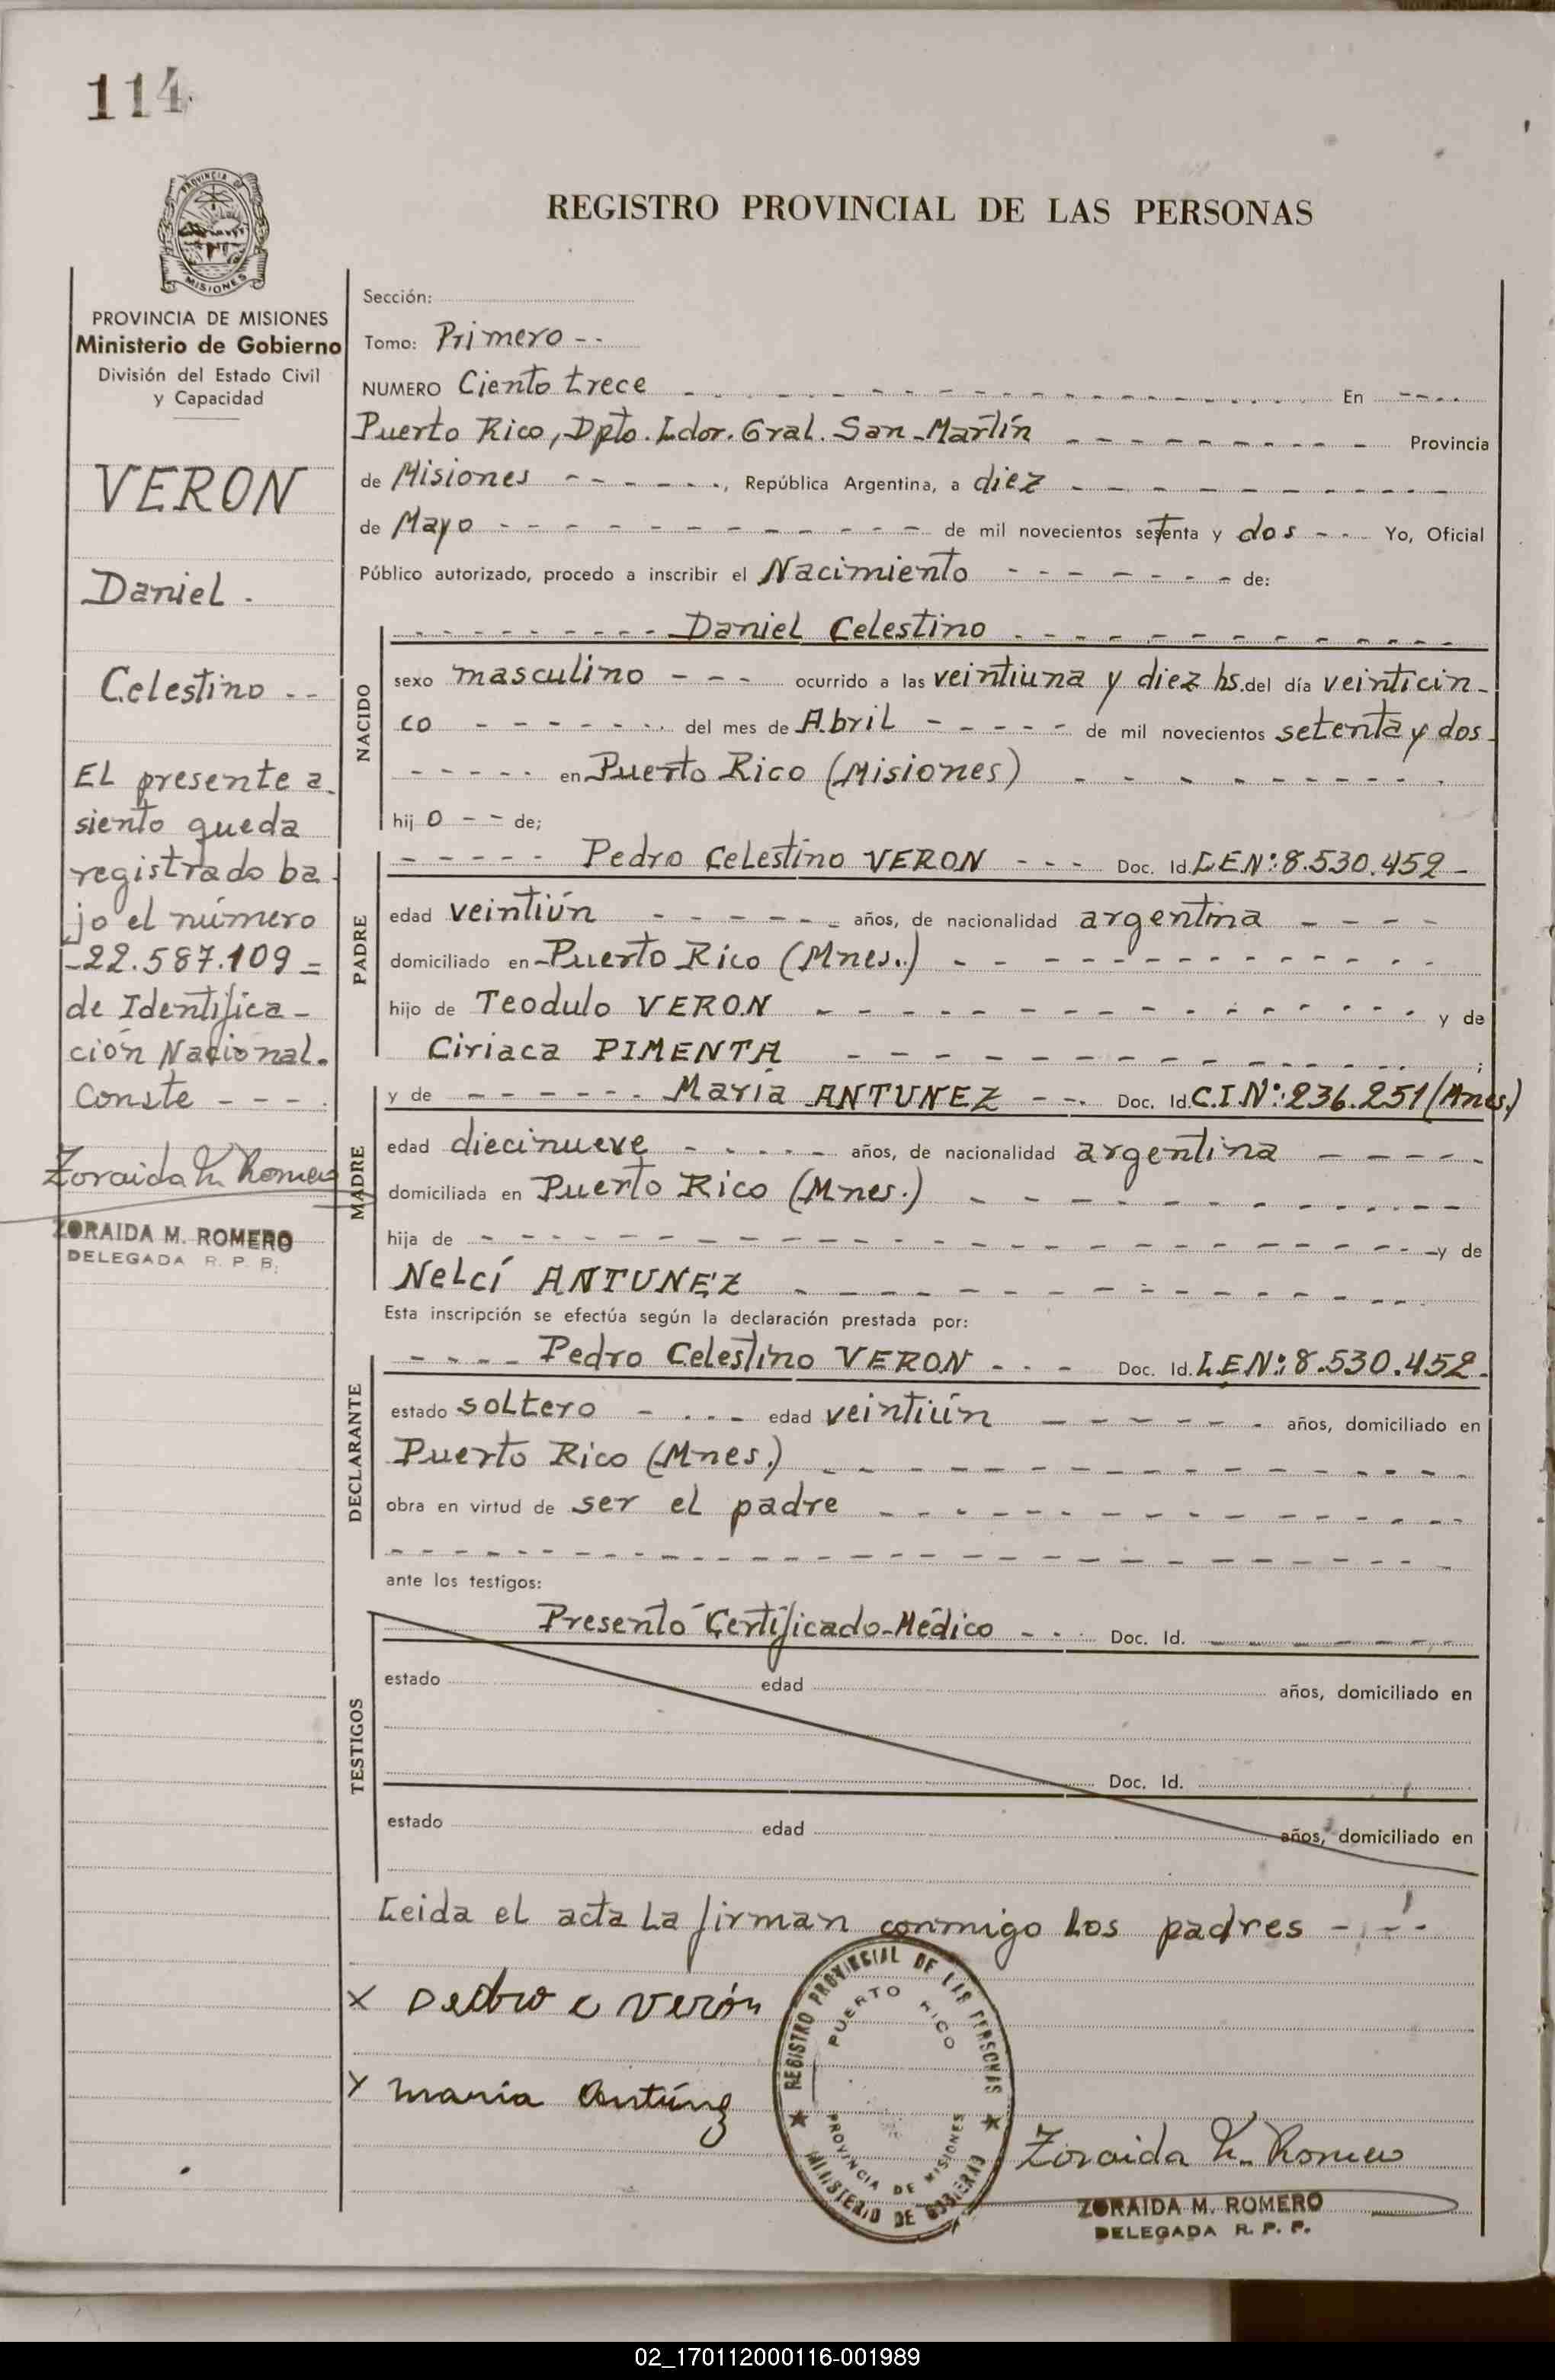 114
PROVINCIA DE
MISIONES
REGISTRO PROVINCIAL DE LAS PERSONAS
PROVINCIA DE MISIONES
Ministerio de Gobierno
División del Estado Civil
y Capacidad
VERON
Daniel .
Celestino - -
EL presente a-
siento queda
registrado ba-
jo el número
-22.587.109=
de Identifica-
ción Nacional.
Conste - - -
Zoraida M. Romero
ZORAIDA M. ROMERO
DELEGADA R. P. P.
Sección:
Tomo: Primero - -
NUMERO Ciento trece - - - En - - - -
Puerto Rico, Dpto. Ldor. Gral. San-Martín - - - Provincia
de Misiones - - - , República Argentina, a diez - - -
de Mayo - - - de mil novecientos setenta y dos - - Yo, Oficial
Público autorizado, procedo a inscribir el Nacimiento - - - de:
NACIDO
- - - Daniel Celestino - - -
sexo masculino - - - ocurrido a las veintiuna y diez hs. del día veinticin-
co - - - del mes de Abril - - - de mil novecientos setenta y dos-
- - - en Puerto Rico (Misiones) - - -
hij o - - de;
PADRE
- - - Pedro Celestino VERON - - - Doc. Id. L.E.Nº:8.530.452 -
edad veintiún - - - años, de nacionalidad argentina - - -
domiciliado en -Puerto Rico (Mnes.) - - -
hijo de Teodulo VERON - - - y de
Ciriaca PIMENTA - - - ;
MADRE
y de - - - María ANTUNEZ - - - Doc. Id. C.I.Nº:236.251/(Mnes.)
edad diecinueve - - - años, de nacionalidad argentina - - -
domiciliada en Puerto Rico (Mnes.) - - -
hija de - - - y de
Nelcí ANTUNEZ - - -
Esta inscripción se efectúa según la declaración prestada por:
DECLARANTE
- - - - Pedro Celestino VERON - - - Doc. Id. L.E.Nº:8.530.452-
estado soltero - - - edad veintiún - - - años, domiciliado en
Puerto Rico (Mnes.) - - -
obra en virtud de ser el padre - - -
- - -
ante los testigos:
TESTIGOS
Presentó Certificado-Médico - - - Doc. Id. - - -
estado edad años, domiciliado en
Doc. Id.
estado edad años, domiciliado en
Leida el acta la firman conmigo los padres - - -
x Pedro c verón
x maria Antúnez
REGISTRO PROVINCIAL DE LAS PERSONAS
PUERTO RICO
PROVINCIA DE MISIONES
MINISTERIO DE GOBIERNO
Zoraida M. Romero
ZORAIDA M. ROMERO
DELEGADA R. P. P.
02_170112000116-001989